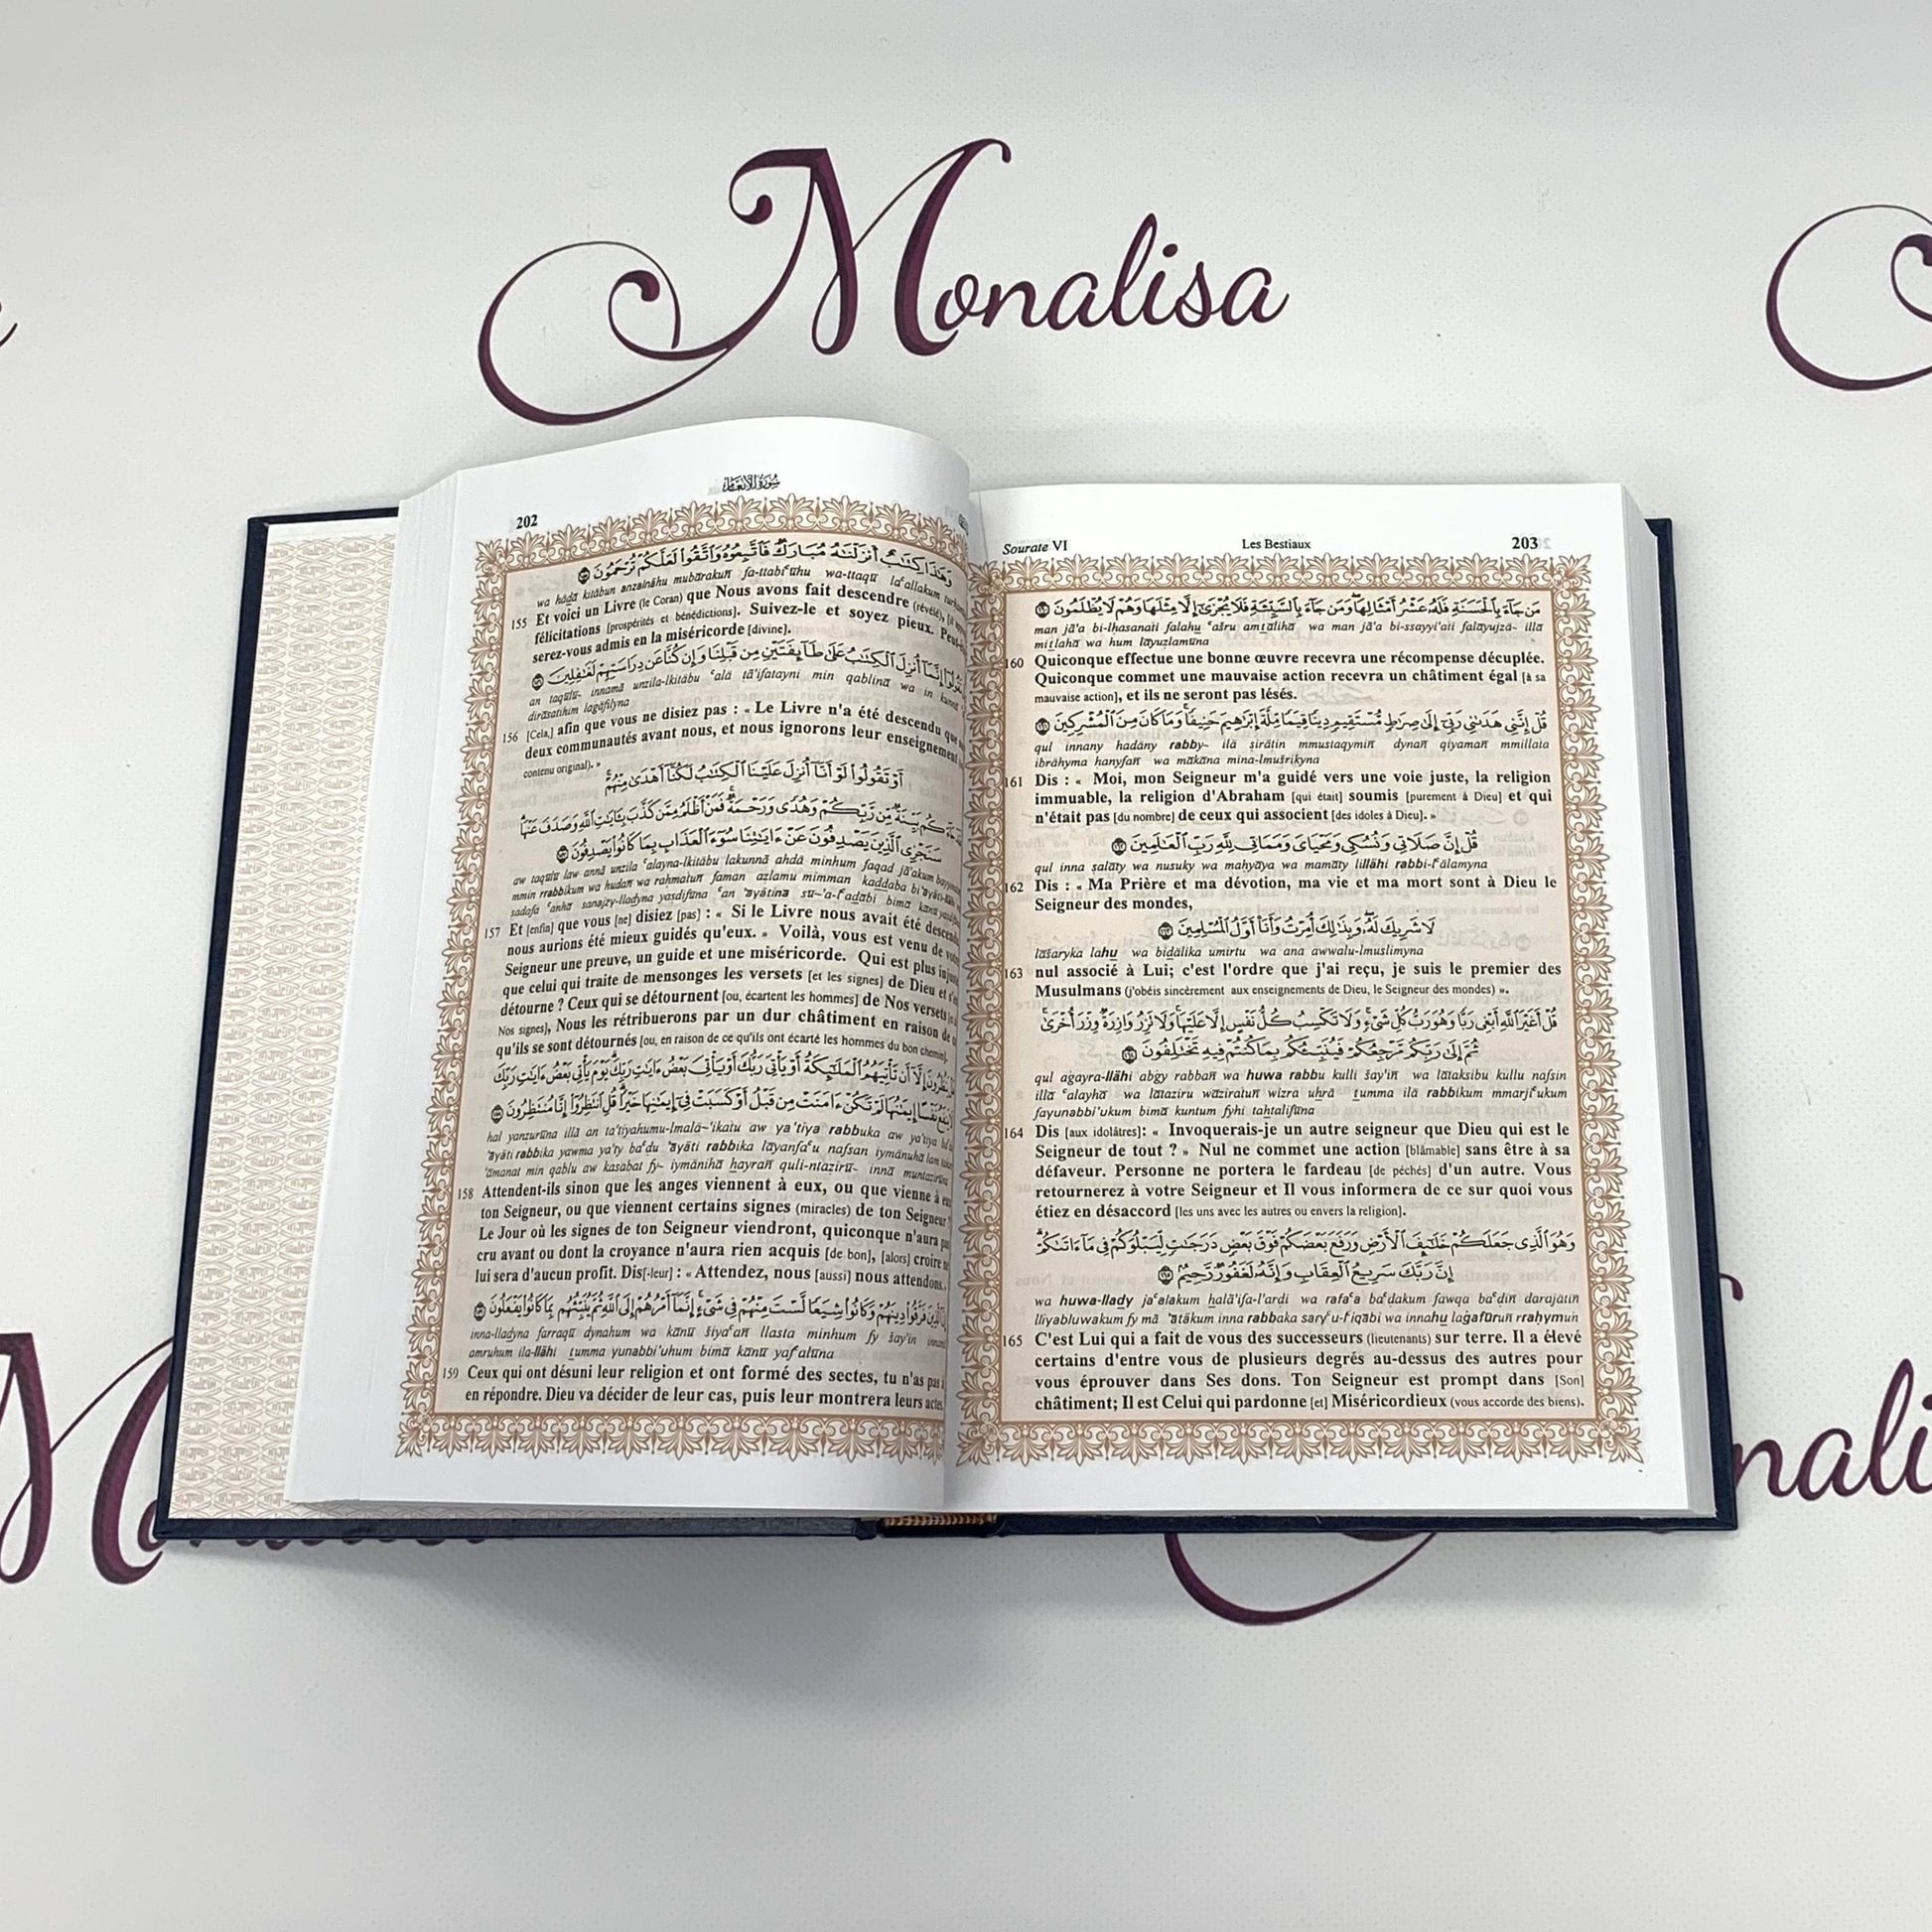 Monalisa
سورة الأنعام
202
وَهَٰذَا كِتَٰبٌ أَنزَلْنَٰهُ مُبَارَكٌ فَٱتَّبِعُوهُ وَٱتَّقُوا۟ لَعَلَّكُمْ تُرْحَمُونَ
wa hāḏā kitābun anzalnāhu mubārakun̄ fa-ttabiʿūhu wa-ttaqū laʿallakum
155 Et voici un Livre (le Coran) que Nous avons fait descendre (révélé),
félicitations [prospérités et bénédictions]. Suivez-le et soyez pieux.
serez-vous admis en la miséricorde [divine].
إِنَّمَآ أُنزِلَ ٱلْكِتَٰبُ عَلَىٰ طَآئِفَتَيْنِ مِن قَبْلِنَا وَإِن كُنَّا عَن دِرَاسَتِهِمْ لَغَٰفِلِينَ
an taqūlū- innamā unzila-lkitābu ʿalā ṭā'ifatayni min qablinā wa in kunnā
dirāsatihim laġāfilyna
156 [Cela,] afin que vous ne disiez pas : « Le Livre n'a été descendu que
deux communautés avant nous, et nous ignorons leur enseignement
contenu original). »
أَوْ تَقُولُوا۟ لَوْ أَنَّآ أُنزِلَ عَلَيْنَا ٱلْكِتَٰبُ لَكُنَّآ أَهْدَىٰ مِنْهُمْ
بَيِّنَةٌ مِّن رَّبِّكُمْ وَهُدًى وَرَحْمَةٌ فَمَنْ أَظْلَمُ مِمَّن كَذَّبَ بِـَٔايَٰتِ ٱللَّهِ وَصَدَفَ عَنْهَا
سَنَجْزِى ٱلَّذِينَ يَصْدِفُونَ عَنْ ءَايَٰتِنَا سُوٓءَ ٱلْعَذَابِ بِمَا كَانُوا۟ يَصْدِفُونَ
aw taqūlū law annā unzila ʿalayna-lkitābu lakunnā ahdā minhum faqad jā'akum
mmin rrabbikum wa hudan̄ wa raḥmatun̄ faman aẓlamu mimman kaḏḏaba bi'āyāti-llāhi
ṣadafa ʿanhā sanajzy-lladyna yaṣdifūna ʿan 'āyātinā sū~'a-lʿaḏābi bimā kānū
157 Et [enfin] que vous [ne] disiez [pas] : « Si le Livre nous avait été
nous aurions été mieux guidés qu'eux. » Voilà, vous est venu de
Seigneur une preuve, un guide et une miséricorde. Qui est plus
que celui qui traite de mensonges les versets [et les signes] de Dieu et
détourne ? Ceux qui se détournent [ou, écartent les hommes] de Nos versets
Nos signes], Nous les rétribuerons par un dur châtiment en raison de
qu'ils se sont détournés [ou, en raison de ce qu'ils ont écarté les hommes du bon chemin].
إِلَّآ أَن تَأْتِيَهُمُ ٱلْمَلَٰٓئِكَةُ أَوْ يَأْتِىَ رَبُّكَ أَوْ يَأْتِىَ بَعْضُ ءَايَٰتِ رَبِّكَ يَوْمَ يَأْتِى بَعْضُ ءَايَٰتِ رَبِّكَ
نَفْسًا إِيمَٰنُهَا لَمْ تَكُنْ ءَامَنَتْ مِن قَبْلُ أَوْ كَسَبَتْ فِىٓ إِيمَٰنِهَا خَيْرًا قُلِ ٱنتَظِرُوٓا۟ إِنَّا مُنتَظِرُونَ
hal yanẓurūna illā an ta'tiyahumu-lmalā~'ikatu aw ya'tiya rabbuka aw ya'tiya
'āyāti rabbika yawma ya'ty baʿḍu 'āyāti rabbika lāyanfaʿu nafsan iymānuhā lam
'āmanat min qablu aw kasabat fy- iymānihā ḫayran̄ quli-ntaẓirū- innā muntaẓirūna
158 Attendent-ils sinon que les anges viennent à eux, ou que vienne à
ton Seigneur, ou que viennent certains signes (miracles) de ton Seigneur
Le Jour où les signes de ton Seigneur viendront, quiconque n'aura
cru avant ou dont la croyance n'aura rien acquis [de bon], [alors] croire
lui sera d'aucun profit. Dis[-leur] : « Attendez, nous [aussi] nous attendons.
ٱلَّذِينَ فَرَّقُوا۟ دِينَهُمْ وَكَانُوا۟ شِيَعًا لَّسْتَ مِنْهُمْ فِى شَىْءٍ إِنَّمَآ أَمْرُهُمْ إِلَى ٱللَّهِ ثُمَّ يُنَبِّئُهُم بِمَا كَانُوا۟ يَفْعَلُونَ
inna-lladyna farraqū dynahum wa kānū šiyaʿan̄ llasta minhum fy šay'in
amruhum ila-llāhi ṯumma yunabbi'uhum bimā kānū yafʿalūna
159 Ceux qui ont désuni leur religion et ont formé des sectes, tu n'as pas
en répondre. Dieu va décider de leur cas, puis leur montrera leurs
Sourate VI
Les Bestiaux
203
مَن جَآءَ بِٱلْحَسَنَةِ فَلَهُۥ عَشْرُ أَمْثَالِهَا وَمَن جَآءَ بِٱلسَّيِّئَةِ فَلَا يُجْزَىٰٓ إِلَّا مِثْلَهَا وَهُمْ لَا يُظْلَمُونَ
man jā'a bi-lḥasanati falahu ʿašru amṯālihā wa man jā'a bi-ssayyi'ati falāyujzā- illā
miṯlahā wa hum lāyuẓlamūna
160 Quiconque effectue une bonne œuvre recevra une récompense décuplée.
Quiconque commet une mauvaise action recevra un châtiment égal [à sa
mauvaise action], et ils ne seront pas lésés.
قُلْ إِنَّنِى هَدَىٰنِى رَبِّىٓ إِلَىٰ صِرَٰطٍ مُّسْتَقِيمٍ دِينًا قِيَمًا مِّلَّةَ إِبْرَٰهِيمَ حَنِيفًا وَمَا كَانَ مِنَ ٱلْمُشْرِكِينَ
qul innany hadāny rabby- ilā ṣirāṭin mmustaqymin̄ dynan qiyaman̄ mmillata
ibrāhyma ḥanyfan̄ wa mākāna mina-lmušrikyna
161 Dis : « Moi, mon Seigneur m'a guidé vers une voie juste, la religion
immuable, la religion d'Abraham [qui était] soumis [purement à Dieu] et qui
n'était pas [du nombre] de ceux qui associent [des idoles à Dieu]. »
قُلْ إِنَّ صَلَاتِى وَنُسُكِى وَمَحْيَاىَ وَمَمَاتِى لِلَّهِ رَبِّ ٱلْعَٰلَمِينَ
qul inna ṣalāty wa nusuky wa maḥyāya wa mamāty lillāhi rabbi-lʿālamyna
162 Dis : « Ma Prière et ma dévotion, ma vie et ma mort sont à Dieu le
Seigneur des mondes,
لَا شَرِيكَ لَهُۥ وَبِذَٰلِكَ أُمِرْتُ وَأَنَا۠ أَوَّلُ ٱلْمُسْلِمِينَ
lāšaryka lahu wa biḏālika umirtu wa ana awwalu-lmuslimyna
163 nul associé à Lui; c'est l'ordre que j'ai reçu, je suis le premier des
Musulmans (j'obéis sincèrement aux enseignements de Dieu, le Seigneur des mondes) ».
قُلْ أَغَيْرَ ٱللَّهِ أَبْغِى رَبًّا وَهُوَ رَبُّ كُلِّ شَىْءٍ وَلَا تَكْسِبُ كُلُّ نَفْسٍ إِلَّا عَلَيْهَا وَلَا تَزِرُ وَازِرَةٌ وِزْرَ أُخْرَىٰ
ثُمَّ إِلَىٰ رَبِّكُم مَّرْجِعُكُمْ فَيُنَبِّئُكُم بِمَا كُنتُمْ فِيهِ تَخْتَلِفُونَ
qul aġayra-llāhi abġy rabban̄ wa huwa rabbu kulli šay'in̄ wa lātaksibu kullu nafsin
illā ʿalayhā wa lātaziru wāziratun̄ wizra uḫrā ṯumma ilā rabbikum mmarjiʿukum
fayunabbi'ukum bimā kuntum fyhi taḫtalifūna
164 Dis [aux idolâtres]: « Invoquerais-je un autre seigneur que Dieu qui est le
Seigneur de tout ? » Nul ne commet une action [blâmable] sans être à sa
défaveur. Personne ne portera le fardeau [de péchés] d'un autre. Vous
retournerez à votre Seigneur et Il vous informera de ce sur quoi vous
étiez en désaccord [les uns avec les autres ou envers la religion].
وَهُوَ ٱلَّذِى جَعَلَكُمْ خَلَٰٓئِفَ ٱلْأَرْضِ وَرَفَعَ بَعْضَكُمْ فَوْقَ بَعْضٍ دَرَجَٰتٍ لِّيَبْلُوَكُمْ فِى مَآ ءَاتَىٰكُمْ
إِنَّ رَبَّكَ سَرِيعُ ٱلْعِقَابِ وَإِنَّهُۥ لَغَفُورٌ رَّحِيمٌۢ
wa huwa-llady jaʿalakum ḫalā'ifa-l'arḍi wa rafaʿa baʿḍakum fawqa baʿḍin darajātin
lliyabluwakum fy mā 'ātākum inna rabbaka saryʿu-lʿiqābi wa innahu laġafūrun̄ rraḥymun
165 C'est Lui qui a fait de vous des successeurs (lieutenants) sur terre. Il a élevé
certains d'entre vous de plusieurs degrés au-dessus des autres pour
vous éprouver dans Ses dons. Ton Seigneur est prompt dans [Son]
châtiment; Il est Celui qui pardonne [et] Miséricordieux (vous accorde des biens).